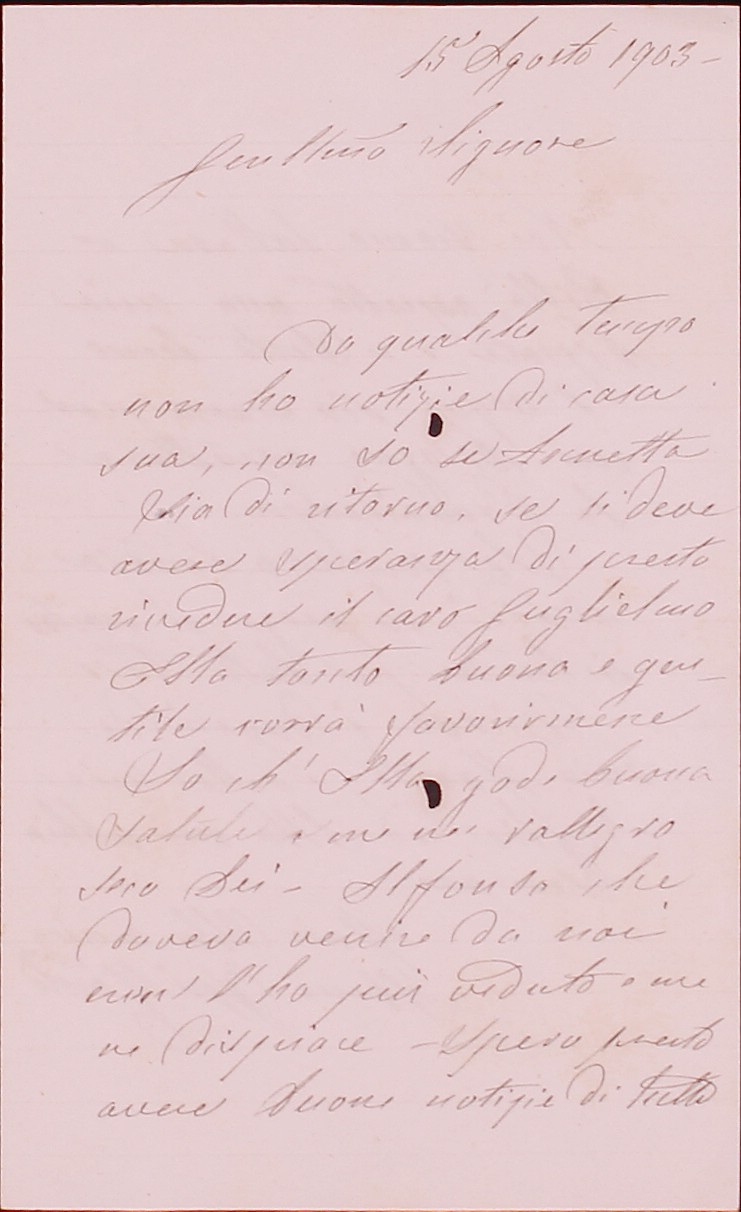 15 Agosto 1903 -
Gentilmo Signore
Da qualche tempo
non ho notizie di casa
sua, non so se Annetta
sia di ritorno, se si deve
avere speranza di presto
rivedere il caro Guglielmo
Ella tanto buona e gen-
tile vorrà favorirmene
So ch' Ella gode buona
salute e me ne rallegro
seco Lei - Alfonso che
doveva venire da noi
non l'ho più veduto e me
ne dispiace - Spero presto
avere buone notizie di tutto